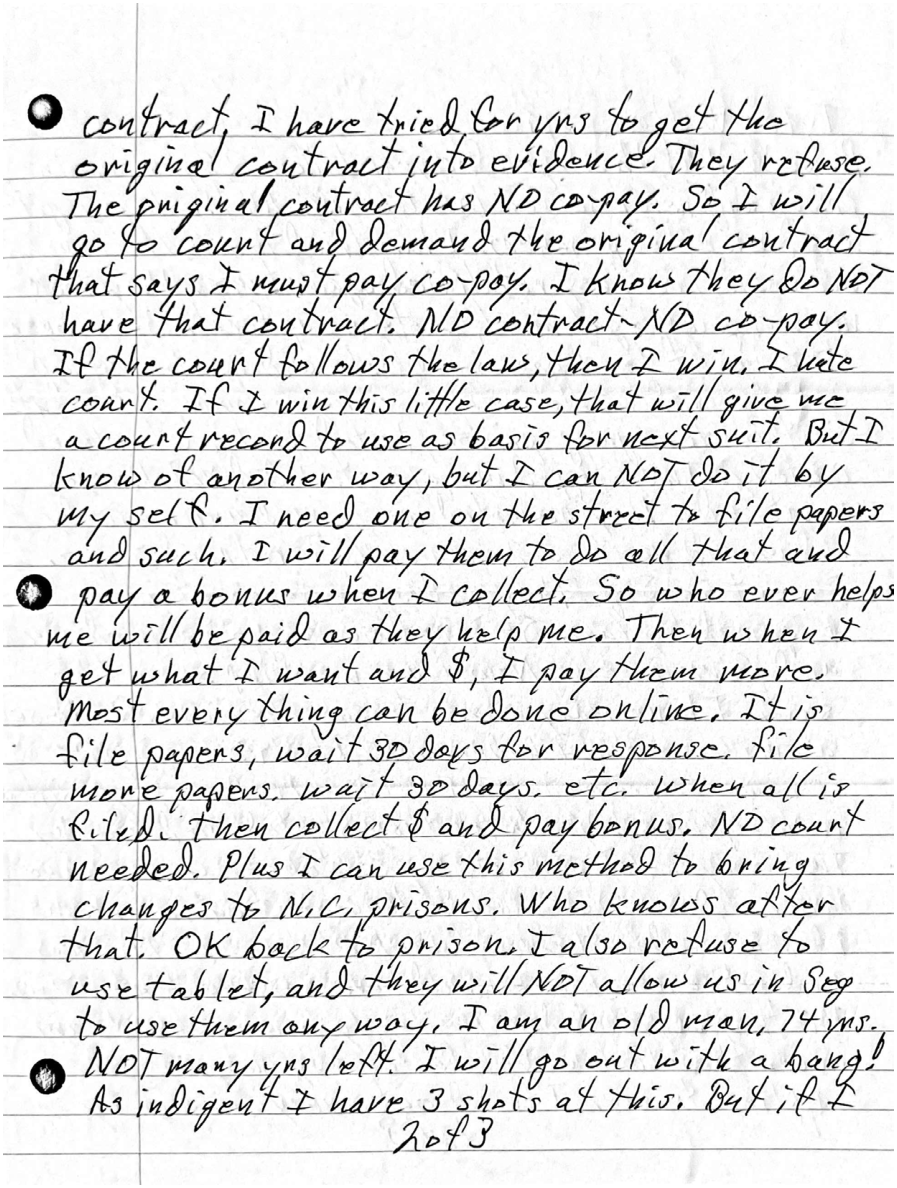 contract, I have tried for yrs to get the
original contract into evidence. They refuse.
The original contract has NO co-pay. So I will
go to court and demand the original contract
that says I must pay co-pay. I know they Do NOT
have that contract. NO contract - NO co-pay.
If the court follows the law, then I win. I hate
court. If I win this little case, that will give me
a court record to use as basis for next suit. But I
know of another way, but I can NOT do it by
my self. I need one on the street to file papers
and such. I will pay them to do all that and
pay a bonus when I collect. So who ever helps
me will be paid as they help me. Then when I
get what I want and $, I pay them more.
Most every thing can be done online. It is
file papers, wait 30 days for response. file
more papers. wait 30 days. etc. when all is
filed. then collect $ and pay bonus. NO court
needed. Plus I can use this method to bring
changes to N.C. prisons. Who knows after
that. OK back to prison. I also refuse to
use tablet, and they will NOT allow us in Seg
to use them any way. I am an old man, 74 yrs.
NOT many yrs left. I will go out with a bang!
As indigent I have 3 shots at this. But if I
2 of 3